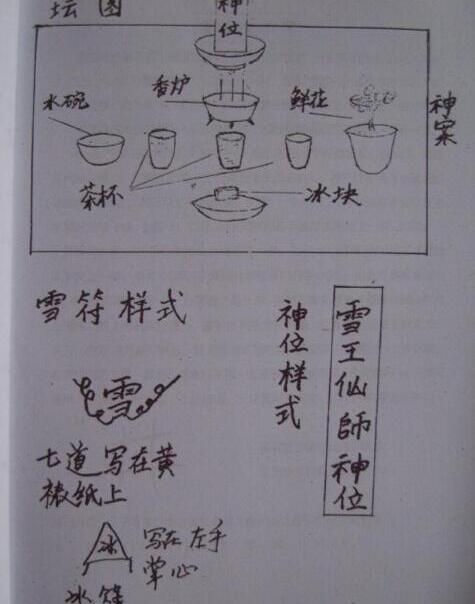 坛图
神位
香炉
水碗
鲜花
神案
茶杯
冰块
雪符样式
雪
七道写在黄
裱纸上
冰
写在左手
掌心
神位样式
雪王仙師神位